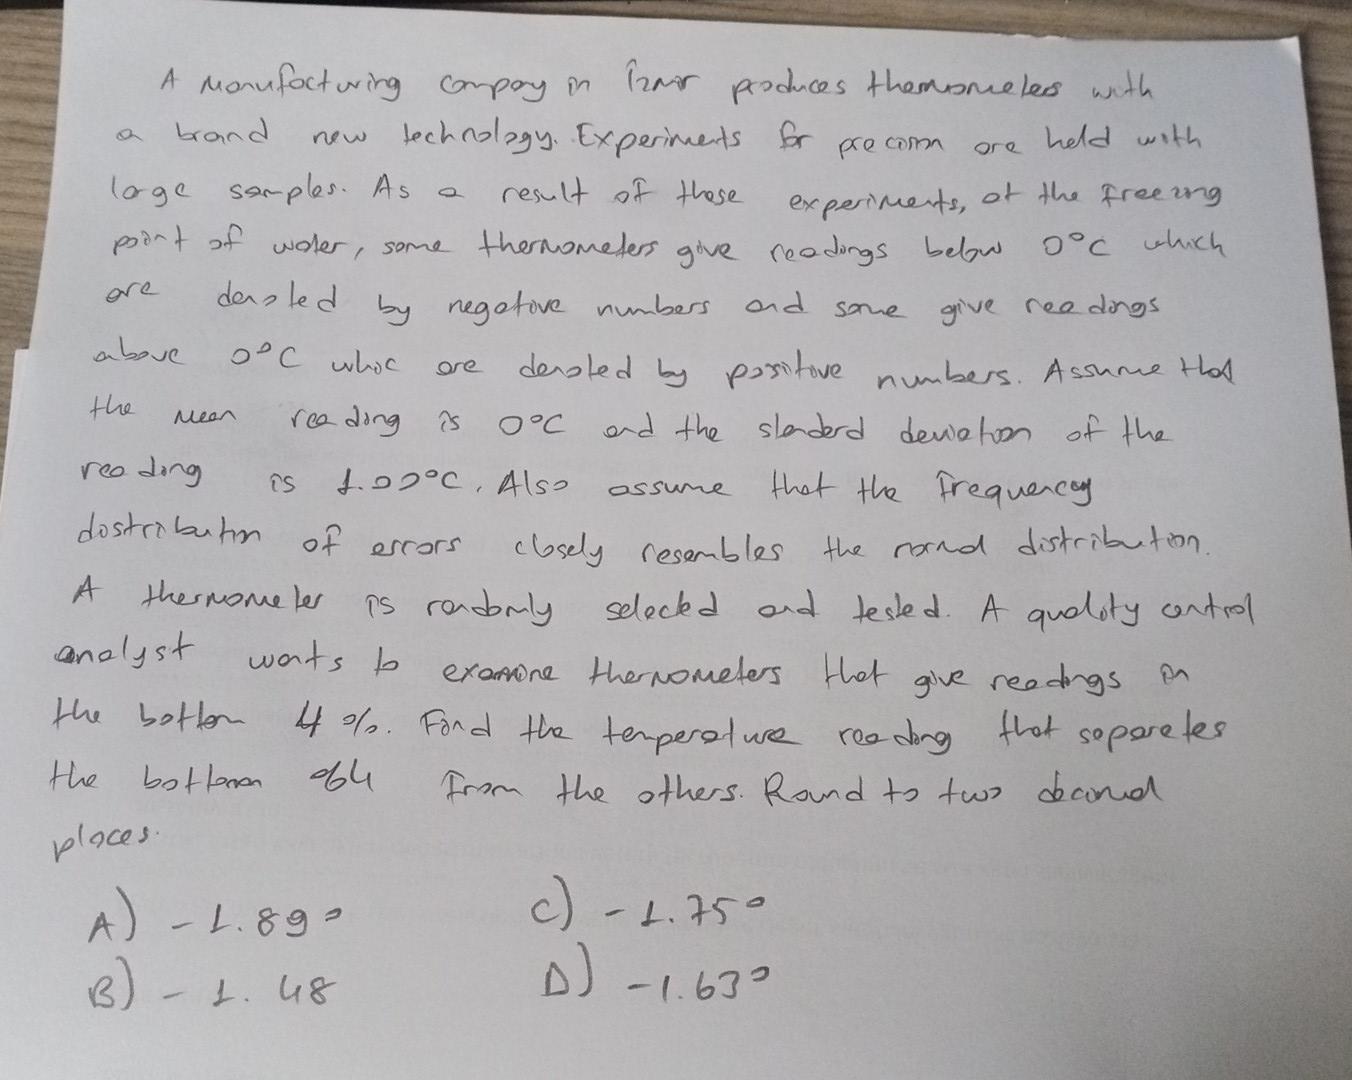 A Manufacturing company in İzmir produces thermometers with
a brand new technology. Experiments for precision are held with
large samples. As a result of these experiments, at the freezing
point of water, some thermometers give readings below 0°C which
are denoted by negative numbers and some give readings
above 0°C whic are denoted by positive numbers. Assume that
the mean reading is 0°C and the standerd deviation of the
reading is 1.00°C. Also assume that the frequency
distribution of errors closely resembles the normal distribution.
A thermometer is randomly selected and tested. A quality control
analyst wants to examine thermometers that give readings in
the bottom 4%. Find the temperature reading that separetes
the bottom %4 from the others. Round to two decimal
places.
A) -1.89° C) -1.75°
B) -1.48 D) -1.63°